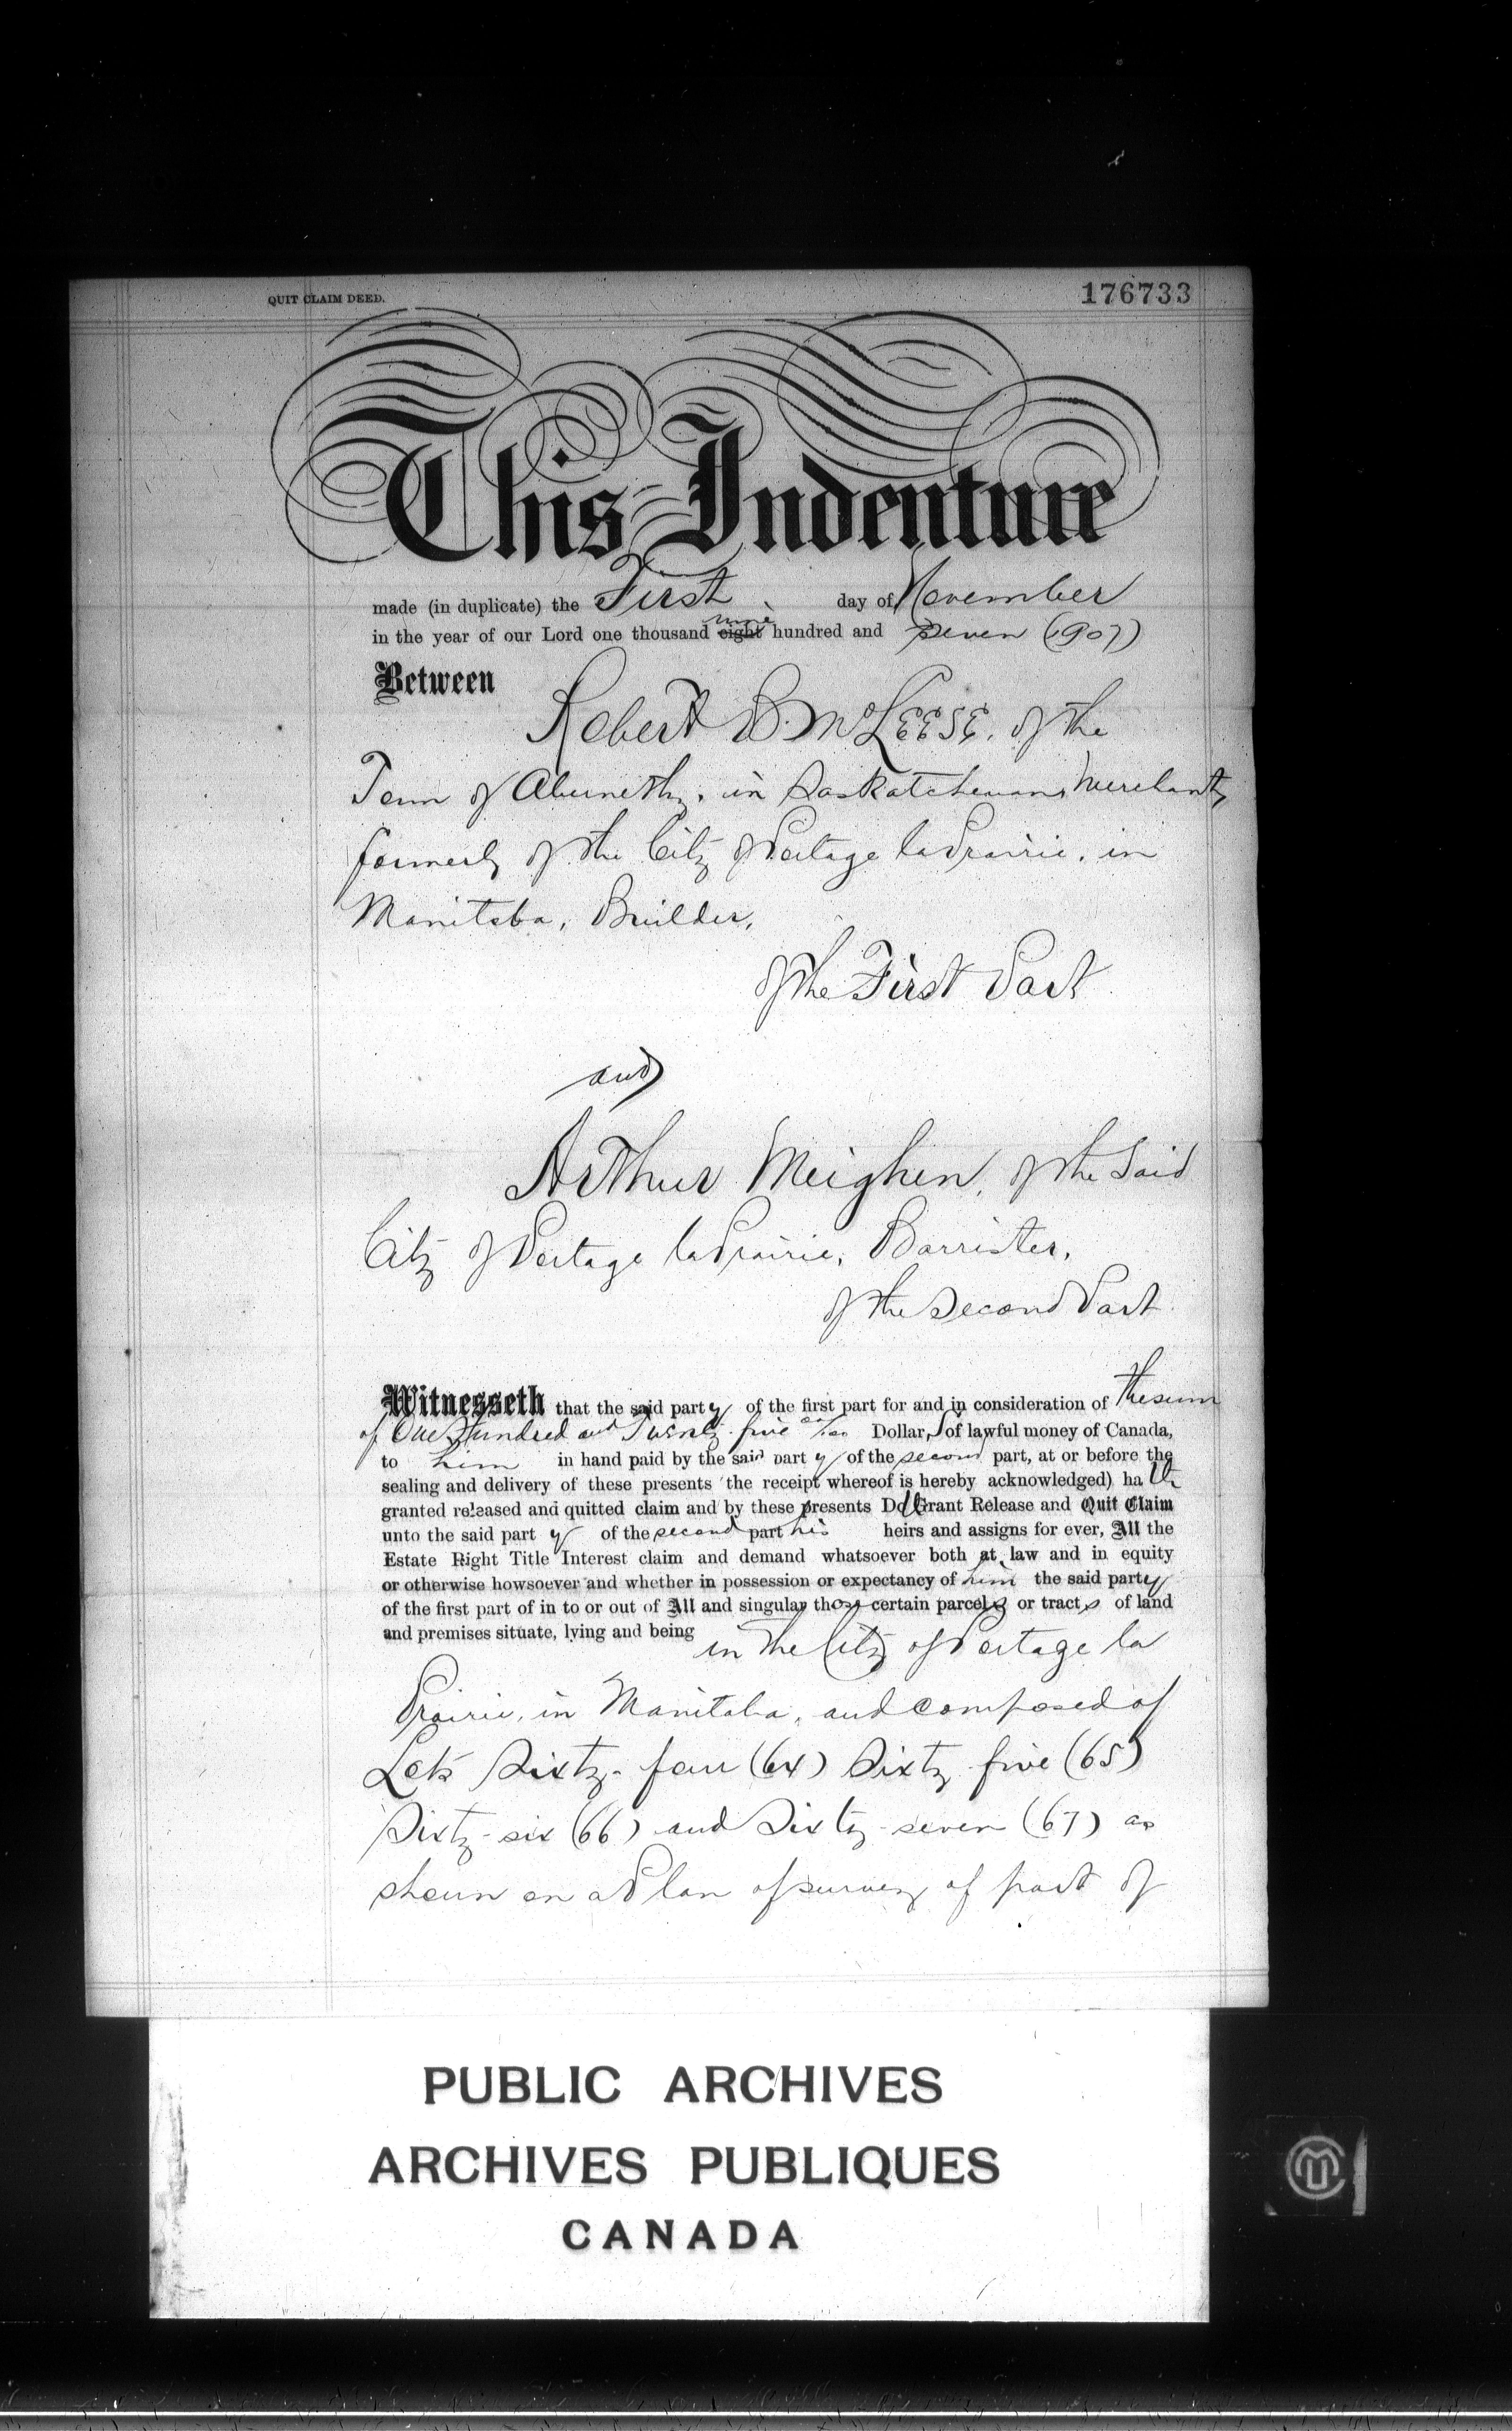 QUIT CLAIM DEED.
176733
This Indenture
made (in duplicate) the First day of November
in the year of our Lord one thousand eight nine hundred and seven (1907)
Between
Robert B. McLEESE, of the
Town of Abernethy, in Saskatchewan, Merchant,
formerly of the City of Portage la Prairie, in
Manitoba, Builder,
of the First Part
and
Arthur Meighen, of the said
City of Portage la Prairie, Barrister,
of the Second Part
Witnesseth that the said party of the first part for and in consideration of the sum
of One Hundred and Twenty five 00/100 Dollars of lawful money of Canada,
to him in hand paid by the said party of the second part, at or before the
sealing and delivery of these presents (the receipt whereof is hereby acknowledged) hath
granted released and quitted claim and by these presents Doth Grant Release and Quit Claim
unto the said party of the second part his heirs and assigns for ever, All the
Estate Right Title Interest claim and demand whatsoever both at law and in equity
or otherwise howsoever and whether in possession or expectancy of him the said party
of the first part of in to or out of All and singular those certain parcels or tracts of land
and premises situate, lying and being in the City of Portage la
Prairie, in Manitoba, and composed of
Lots Sixty-four (64) Sixty five (65)
Sixty-six (66) and Sixty-seven (67) as
shown on a Plan of survey of part of
PUBLIC ARCHIVES
ARCHIVES PUBLIQUES
CANADA